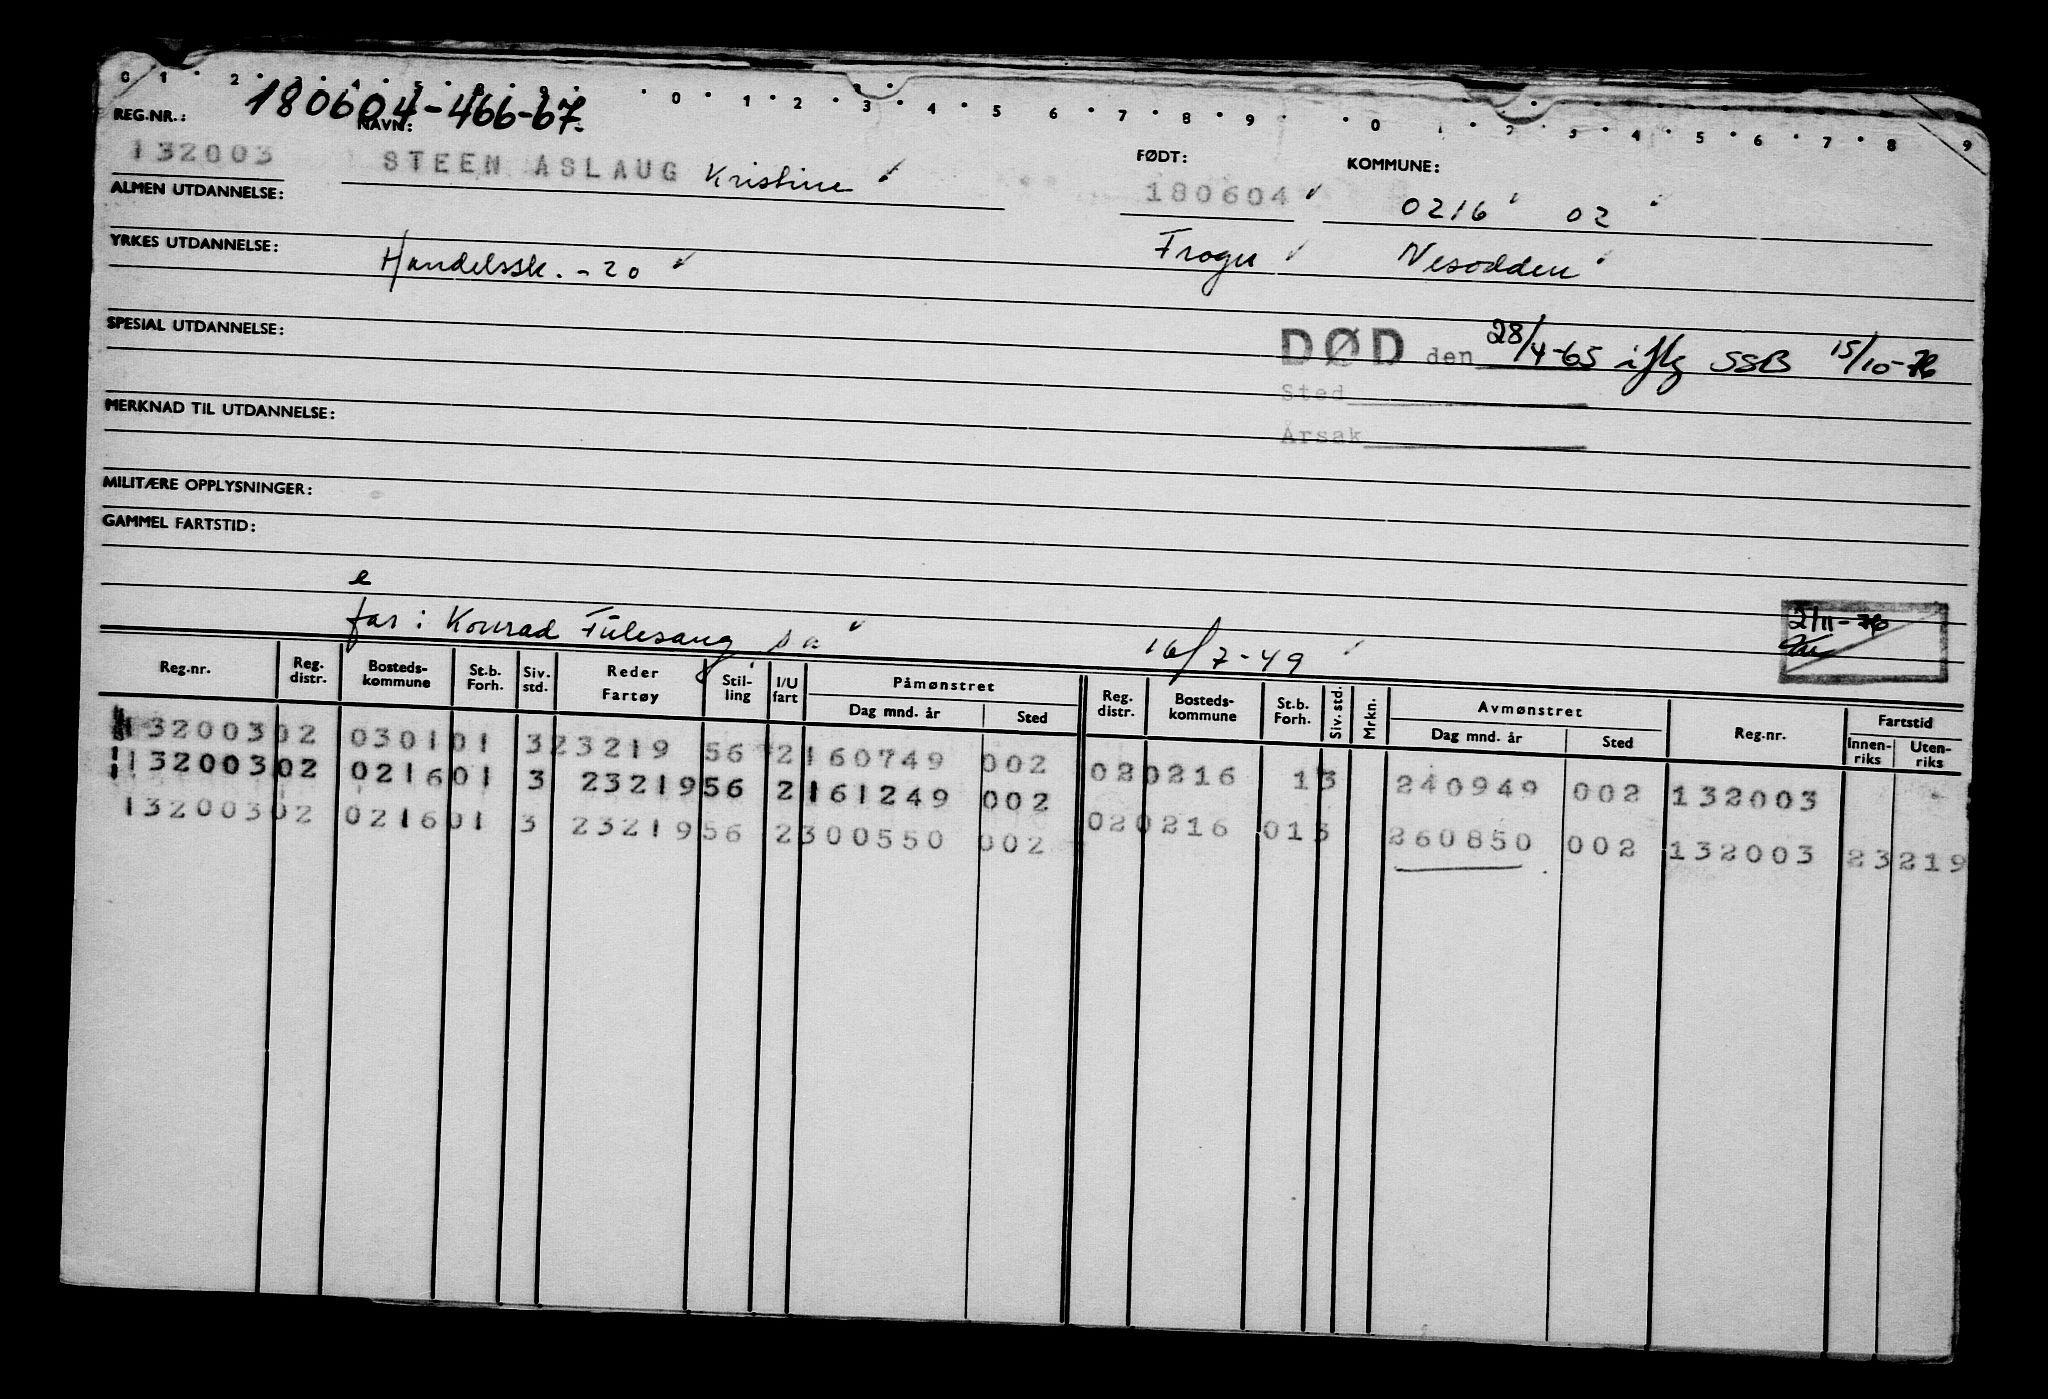 0 1 2 3 4 5 8 9 0 1 2 3 4 5 6 7 8 9 0 1 2 3 4 5 6 7 8 9
180604-466-67.
REG.NR.: NAVN: FØDT: KOMMUNE:
132003 STEEN ASLAUG Kristine 180604 0216 02
ALMEN UTDANNELSE:
YRKES UTDANNELSE: Handelssk. -20 Frogn Nesodden
SPESIAL UTDANNELSE:
DØD den 28/4-65 iflg SSB 15/10-76
Sted
Årsak
MERKNAD TIL UTDANNELSE:
MILITÆRE OPPLYSNINGER:
GAMMEL FARTSTID:
e
far: Konrad Fulesang sa 16/7-49
2/11-76
Reg.nr. Reg. distr. Bosteds-kommune St.b. Forh. Siv. std. Reder Fartøy Stil-ling I/U fart Påmønstret Dag mnd. år Sted Reg. distr. Bosteds-kommune St.b. Forh. Siv. std. Mrkn. Avmønstret Dag mnd. år Sted Reg.nr. Fartstid Innen-riks Uten-riks
132003 02 0301 01 3 23219 56 2 160749 002 02 0216 1 3 240949 002 132003
132003 02 0216 01 3 23219 56 2 161249 002
132003 02 0216 01 3 23219 56 2 300550 002 02 0216 01 3 260850 002 132003 23219